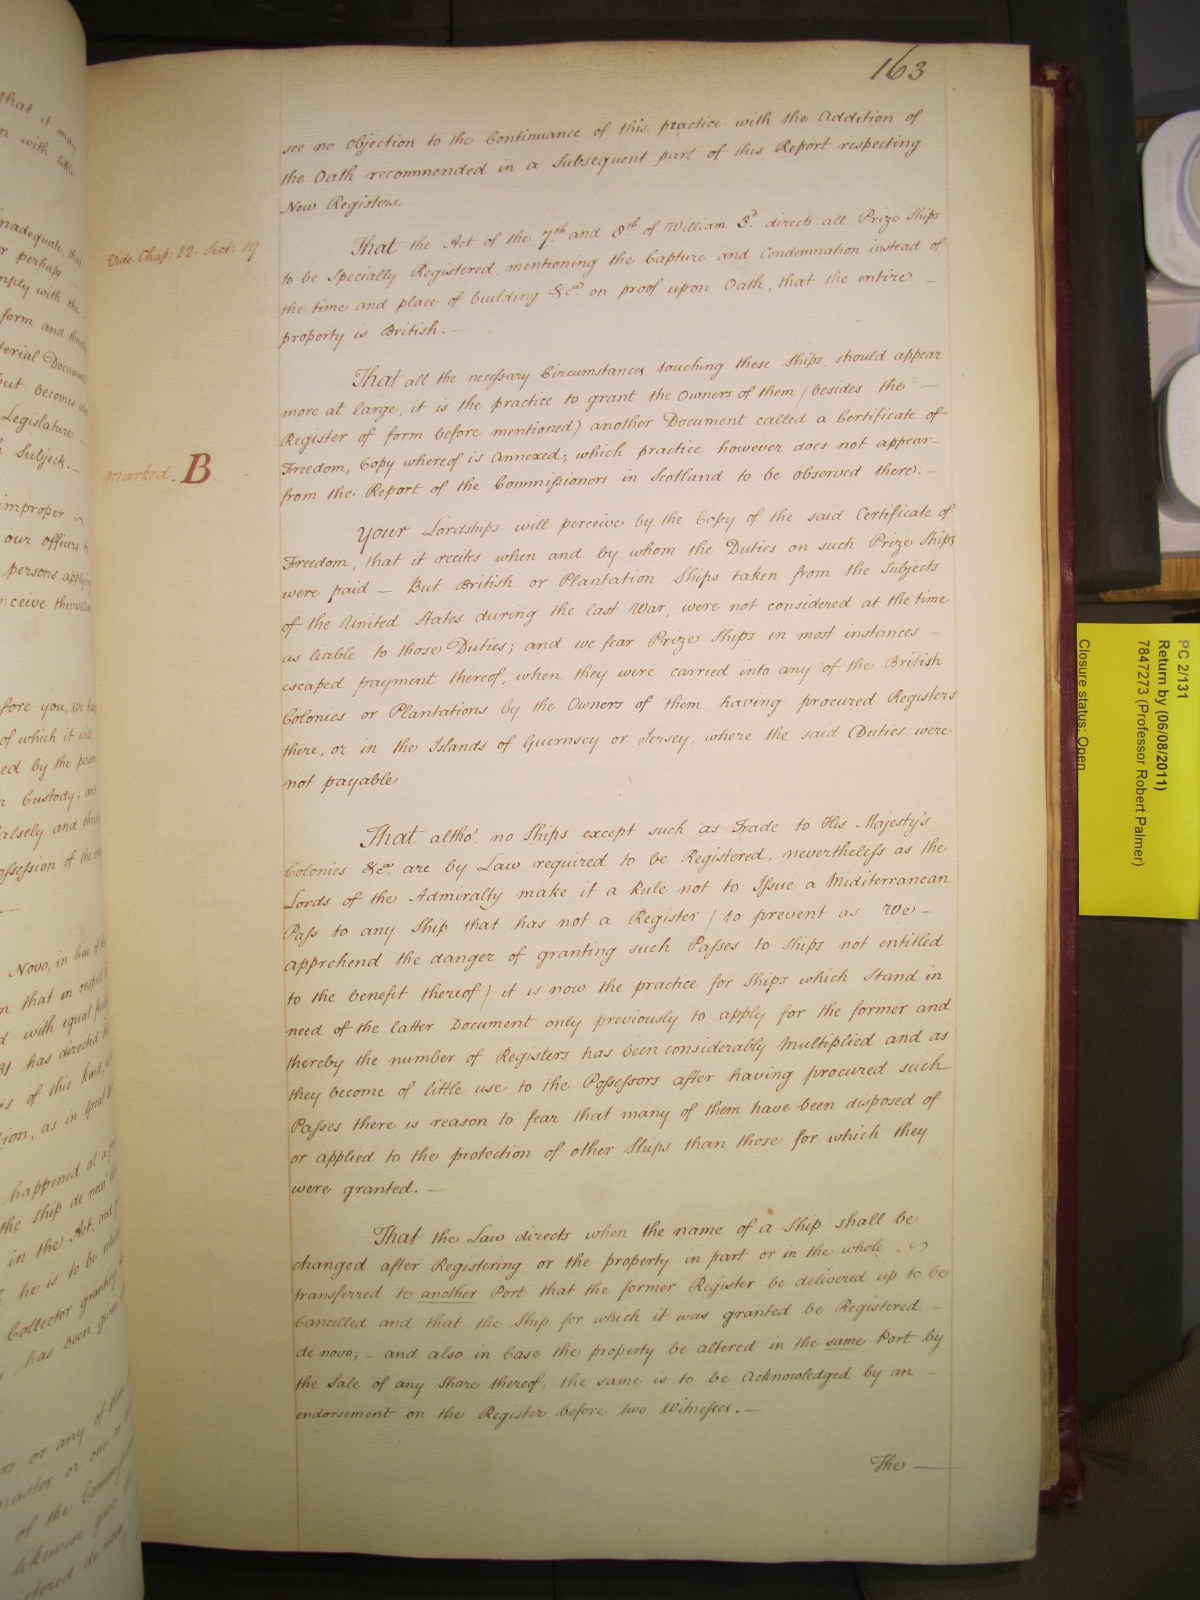 163
see no Objection to the Continuance of this practice with the Addition of
the Oath recommended in a Subsequent part of this Report respecting
New Registers.
Vide Chap: 22. Sect: 19
That the Act of the 7th and 8th of William 3d. directs all Prize Ships
to be Specially Registered, mentioning the Capture and Condemnation instead of
the time and place of building &ca. on proof upon Oath, that the entire –
property is British. –
That all the necessary Circumstances touching these Ships, should appear
more at large, it is the practice to grant the Owners of them / besides the –
Register of form before mentioned) another Document called a Certificate of
Freedom, Copy whereof is Annexed; which practice however does not appear –
Marked. B
from the Report of the Commissioners in Scotland to be observed there. –
Your Lordships will perceive by the Copy of the said Certificate of
Freedom, that it recites when and by whom the Duties on such Prize Ships
were paid – But British or Plantation Ships taken from the Subjects
of the United States during the last War, were not considered at the time
as liable to those Duties; and we fear Prize Ships in most instances –
escaped payment thereof, when they were carried into any of the British
Colonies or Plantations by the Owners of them having procured Registers
there, or in the Islands of Guernsey or Jersey, where the said Duties were
not payable
That altho' no Ships except such as Trade to His Majesty's
Colonies &ca. are by Law required to be Registered, nevertheless as the
Lords of the Admiralty make it a Rule not to Issue a Mediterranean
Pass to any Ship that has not a Register / to prevent as We –
apprehend the danger of granting such Passes to Ships not entitled
to the benefit thereof / it is now the practice for Ships which Stand in
need of the latter Document only previously to apply for the former and
thereby the number of Registers has been considerably Multiplied and as
they become of little use to the Possessors after having procured such
Passes there is reason to fear that many of them have been disposed of
or applied to the protection of other Ships than those for which they
were granted. –
That the Law directs when the name of a Ship shall be
changed after Registering or the property in part or in the whole
transferred to another Port that the former Register be delivered up to be
Cancelled and that the Ship for which it was granted be Registered –
de novo; – and also in Case the property be altered in the same Port by
the Sale of any Share thereof, the same is to be Acknowledged by an –
endorsement on the Register before two Witnesses. –
The –
PC 2/131
Return by (06/08/2011)
7847273 (Professor Robert Palmer)
Closure status: Open
that it may
with little
inadequate, that
or perhaps –
comply with the
form and
Document
but becomes
Legislature –
Subject. –
improper
our officers to
persons applying
fore you, we
of which it will
ed by the person
Custody; and
falsely and
Possession of the
Novo, in lieu of
that in respect
with equal
has directed
of this kind,
tion, as in Great
happened at a
the Ship de novo
in the Act, and
he is to be
Collector granting
has been given
or any of them
Master or one
of the
likewise give
de novo